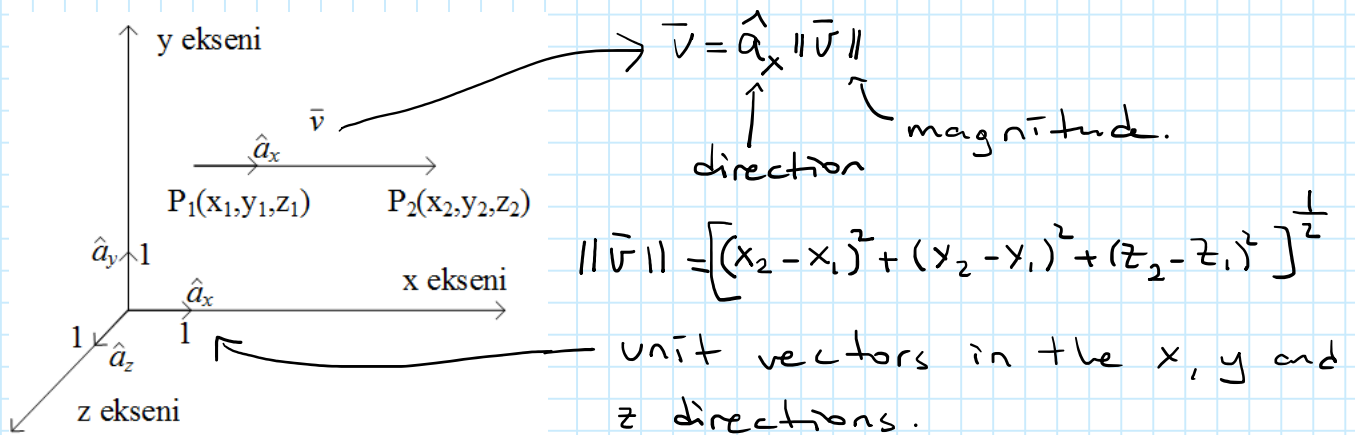 y ekseni
v̄
âₓ
P₁(x₁,y₁,z₁)
P₂(x₂,y₂,z₂)
â_y 1
x ekseni
âₓ
1
1
â_z
z ekseni
v̄ = âₓ ‖v̄‖
magnitude.
direction
‖v̄‖ = [(x₂-x₁)² + (y₂-y₁)² + (z₂-z₁)²]^(1/2)
unit vectors in the x, y and
z directions.